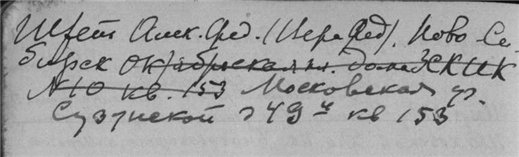 Шует Алек. Фед. (Цере Фед). Ново-Се-
бирск Октябрьская ул. дом ЗСКИК
№10 кв. 153 Московская ул.
Сузунской д 49 кв 153